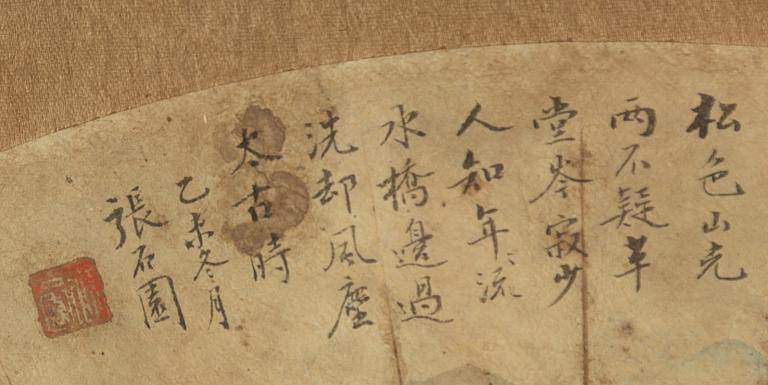 松色山光
兩不疑草
堂岑寂少
人知年〻流
水橋邊過
洗却風塵
太古時
乙未冬月
張石園